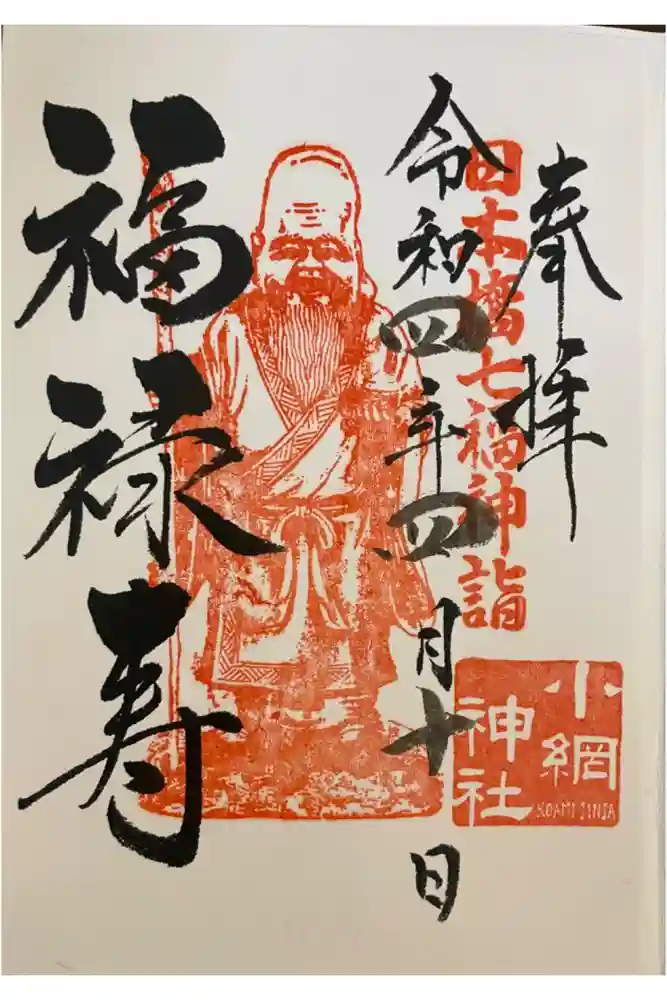 奉拝
日本橋七福神詣
令和四年四月十日
福禄寿
小網
神社
KOAMI JINJA